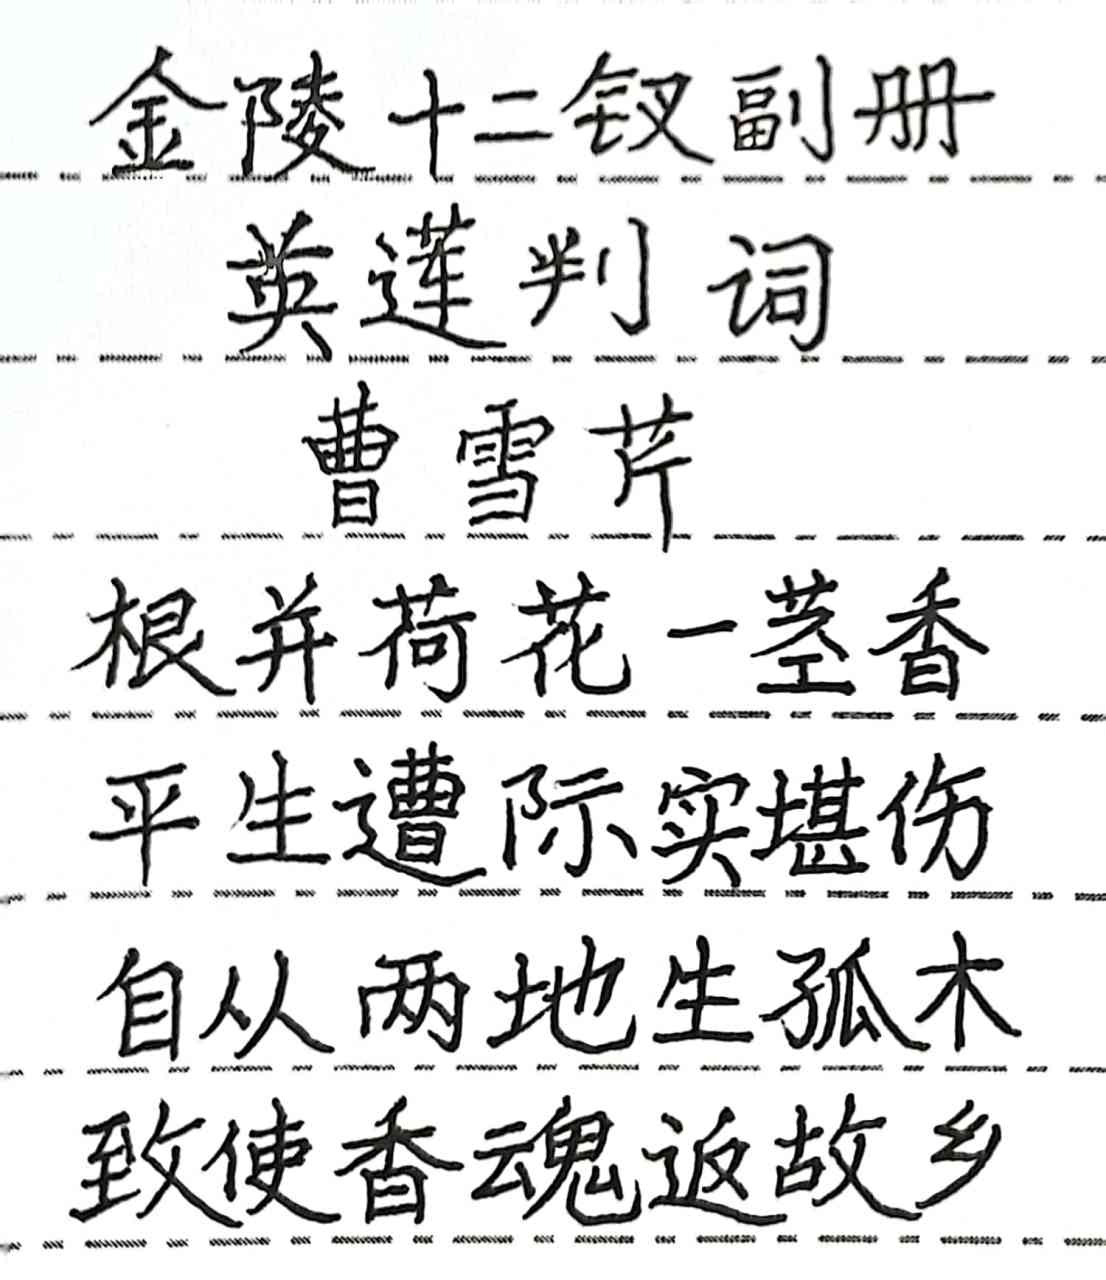 金陵十二钗副册
英莲判词
曹雪芹
根并荷花一茎香
平生遭际实堪伤
自从两地生孤木
致使香魂返故乡